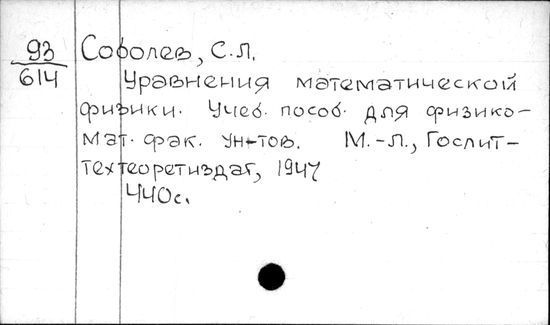 93 Соболев, С.Л.
614 Уравнения математической
физики. Учеб. пособ. для физико-
мат. фак. ун-тов. М.-Л., Гослит-
техтеоретиздат, 1947
440с.